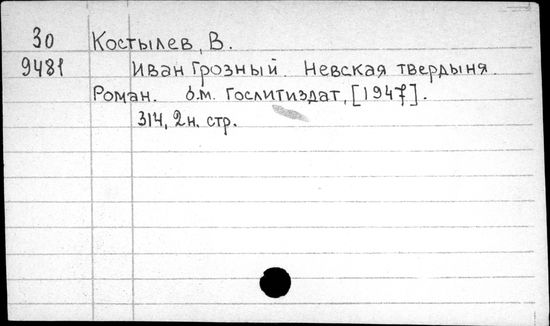 30 Костылев, В.
9481 Иван Грозный. Невская твердыня.
Роман. б.м. Гослитиздат, [1947].
314, 2н. стр.